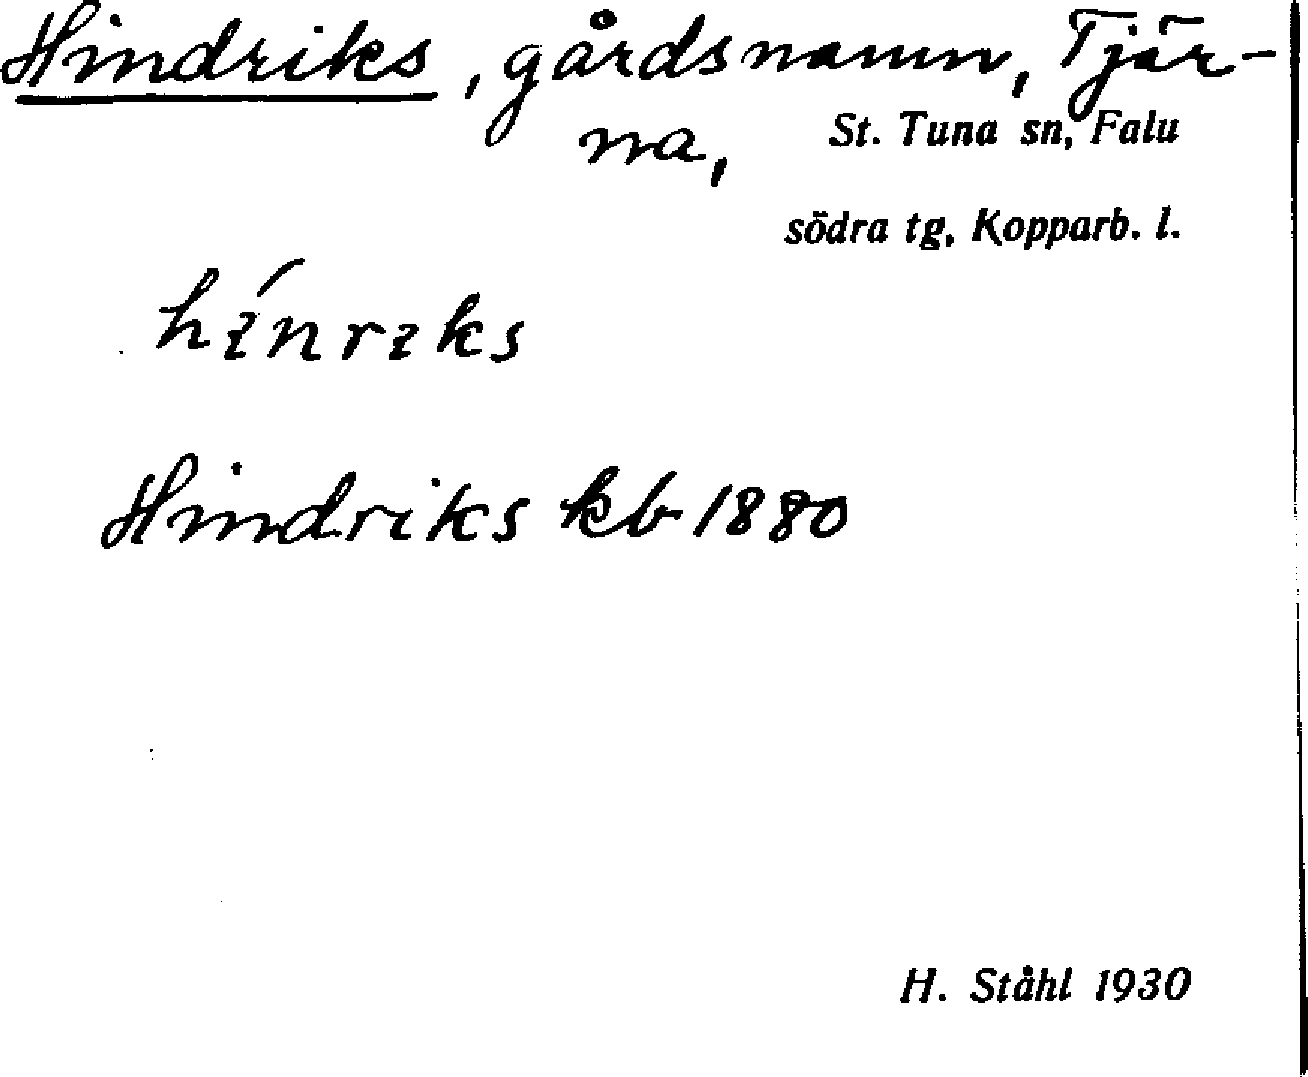 Hindriks, gårdsnamn, Tjär-
na, St. Tuna sn, Falu
södra tg, Kopparb. l.
hínriks
Hindriks kb 1880
H. Ståhl 1930